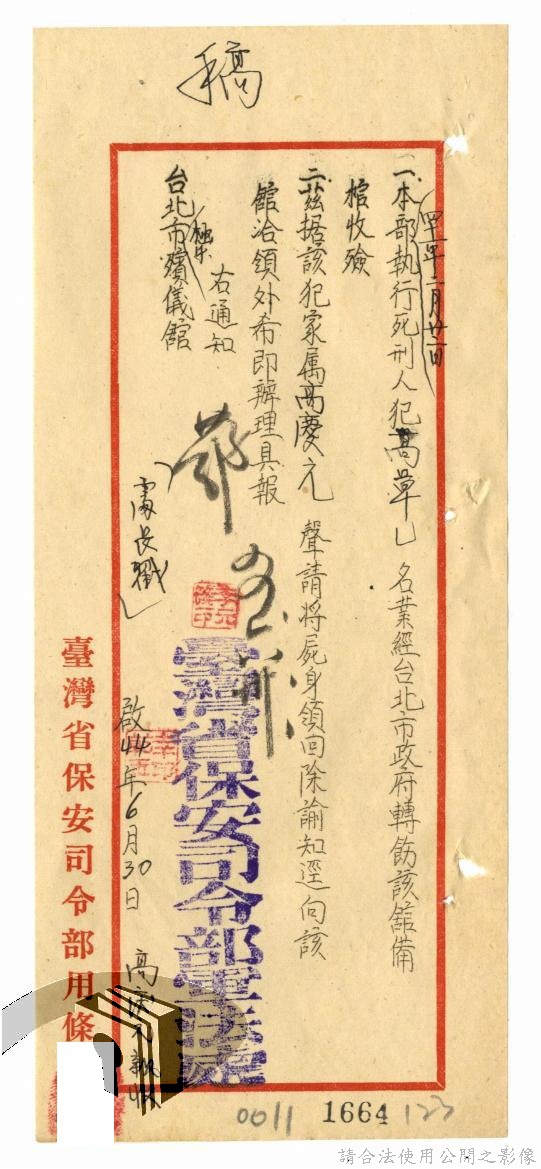 稿
四十年二月廿一日
一、本部執行死刑人犯高草乙名業經台北市政府轉飭該館備
棺收殮
二、茲据該犯家属高慶元聲請將屍身領回除諭知逕向該
館洽領外希即辦理具報
右通知
台北市極樂殯儀館
處長戳
臺灣省保安司令部軍法處
啟44年6月30日
臺灣省保安司令部用條
0011 1664 123
請合法使用公開之影像